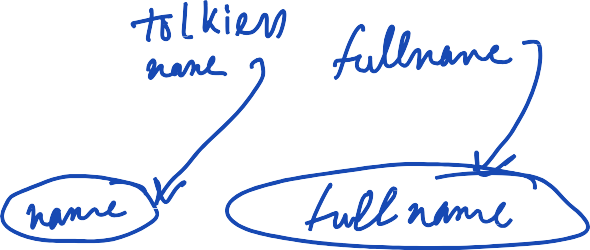 tolkien
name
fullname
name
full name